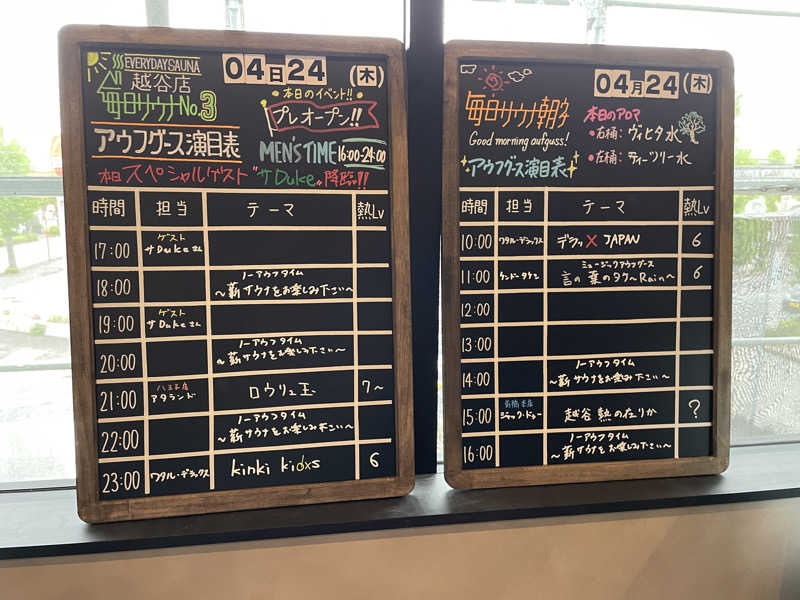 EVERYDAYSAUNA
越谷店
毎日サウナNo.3
04日24(木)
本日のイベント!!
プレオープン!!
アウフグース演目表
MEN'S TIME 16:00-24:00
本日スペシャルゲスト"サDuke"降臨!!
時間 担当 テーマ 熱Lv
17:00 ゲスト
サDukeさん
18:00 ノーアウフタイム
〜薪サウナをお楽しみ下さい〜
19:00 ゲスト
サDukeさん
20:00 ノーアウフタイム
〜薪サウナをお楽しみ下さい〜
21:00 八王子店
アタランド ロウリュ王 7〜
22:00 ノーアウフタイム
〜薪サウナをお楽しみ下さい〜
23:00 ワタル・デラックス kinki kidxs 6
04月24(木)
毎日サウナ朝子
Good morning aufguss!
アウフグース演目表
本日のアロマ
・右桶:ヴィヒタ水
・左桶:ティーツリー水
時間 担当 テーマ 熱Lv
10:00 ワタル・デラックス デラックX JAPAN 6
11:00 ケンドータケシ ミュージックアウフグース
言の葉のタケ〜Rain〜 6
12:00
13:00
14:00 ノーアウフタイム
〜薪サウナをお楽しみ下さい〜
15:00 前橋本店
ジャック・ドゥー 越谷 熱の在りか ?
16:00 ノーアウフタイム
〜薪サウナをお楽しみ下さい〜